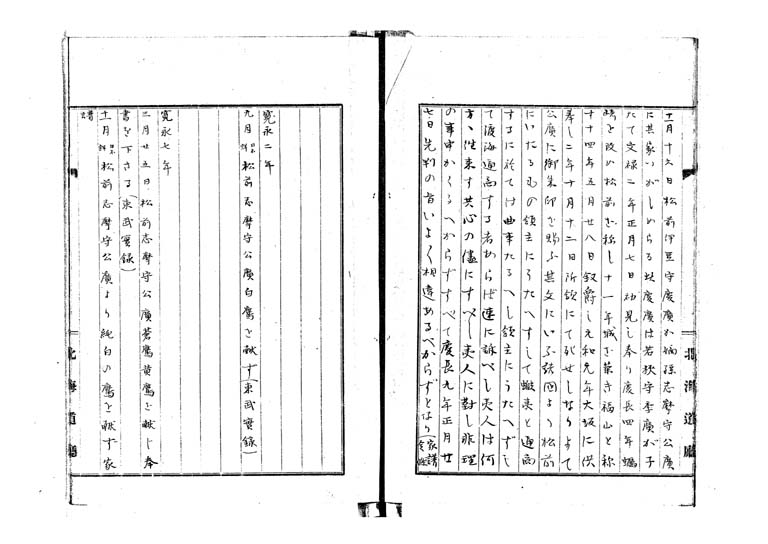 十二月十六日松前伊豆守慶廣が嫡孫志摩守公廣
に其家いがしめらる此慶廣は若狭守季廣が子
たて文禄二年正月七日初見し奉り慶長四年蠣
崎を改め松前を称し十一年城を築き福山と称
す十四年五月廿八日叙爵し元和元年大坂に供
奉し二年十月十二日所領にて死せしなりよて
公廣に御朱印を賜ふ其文にいふ諸国より松前
にいたるもの領主にうたへずして蝦夷と通商
するに於ては曲事たるへし領主にうたへずし
て渡海通商する者あらば速に訴べし夷人は何
方へ往来す共心の儘にすべし夷人に対し非理
の事申かくるへからずすべて慶長九年正月廿
七日先判の旨いよ〱相違あるべからずとなり(家譜
寛永二年
九月 日不詳 松前志摩守公廣白鷹を献ず(東武實録)
寛永七年
二月廿五日松前志摩守公廣蒼鷹黄鷹を献じ奉
書を下さる(東武實録)
十一月 日不詳 松前志摩守公廣より純白の鷹を献ず家
譜
北海道廳
北海道廳